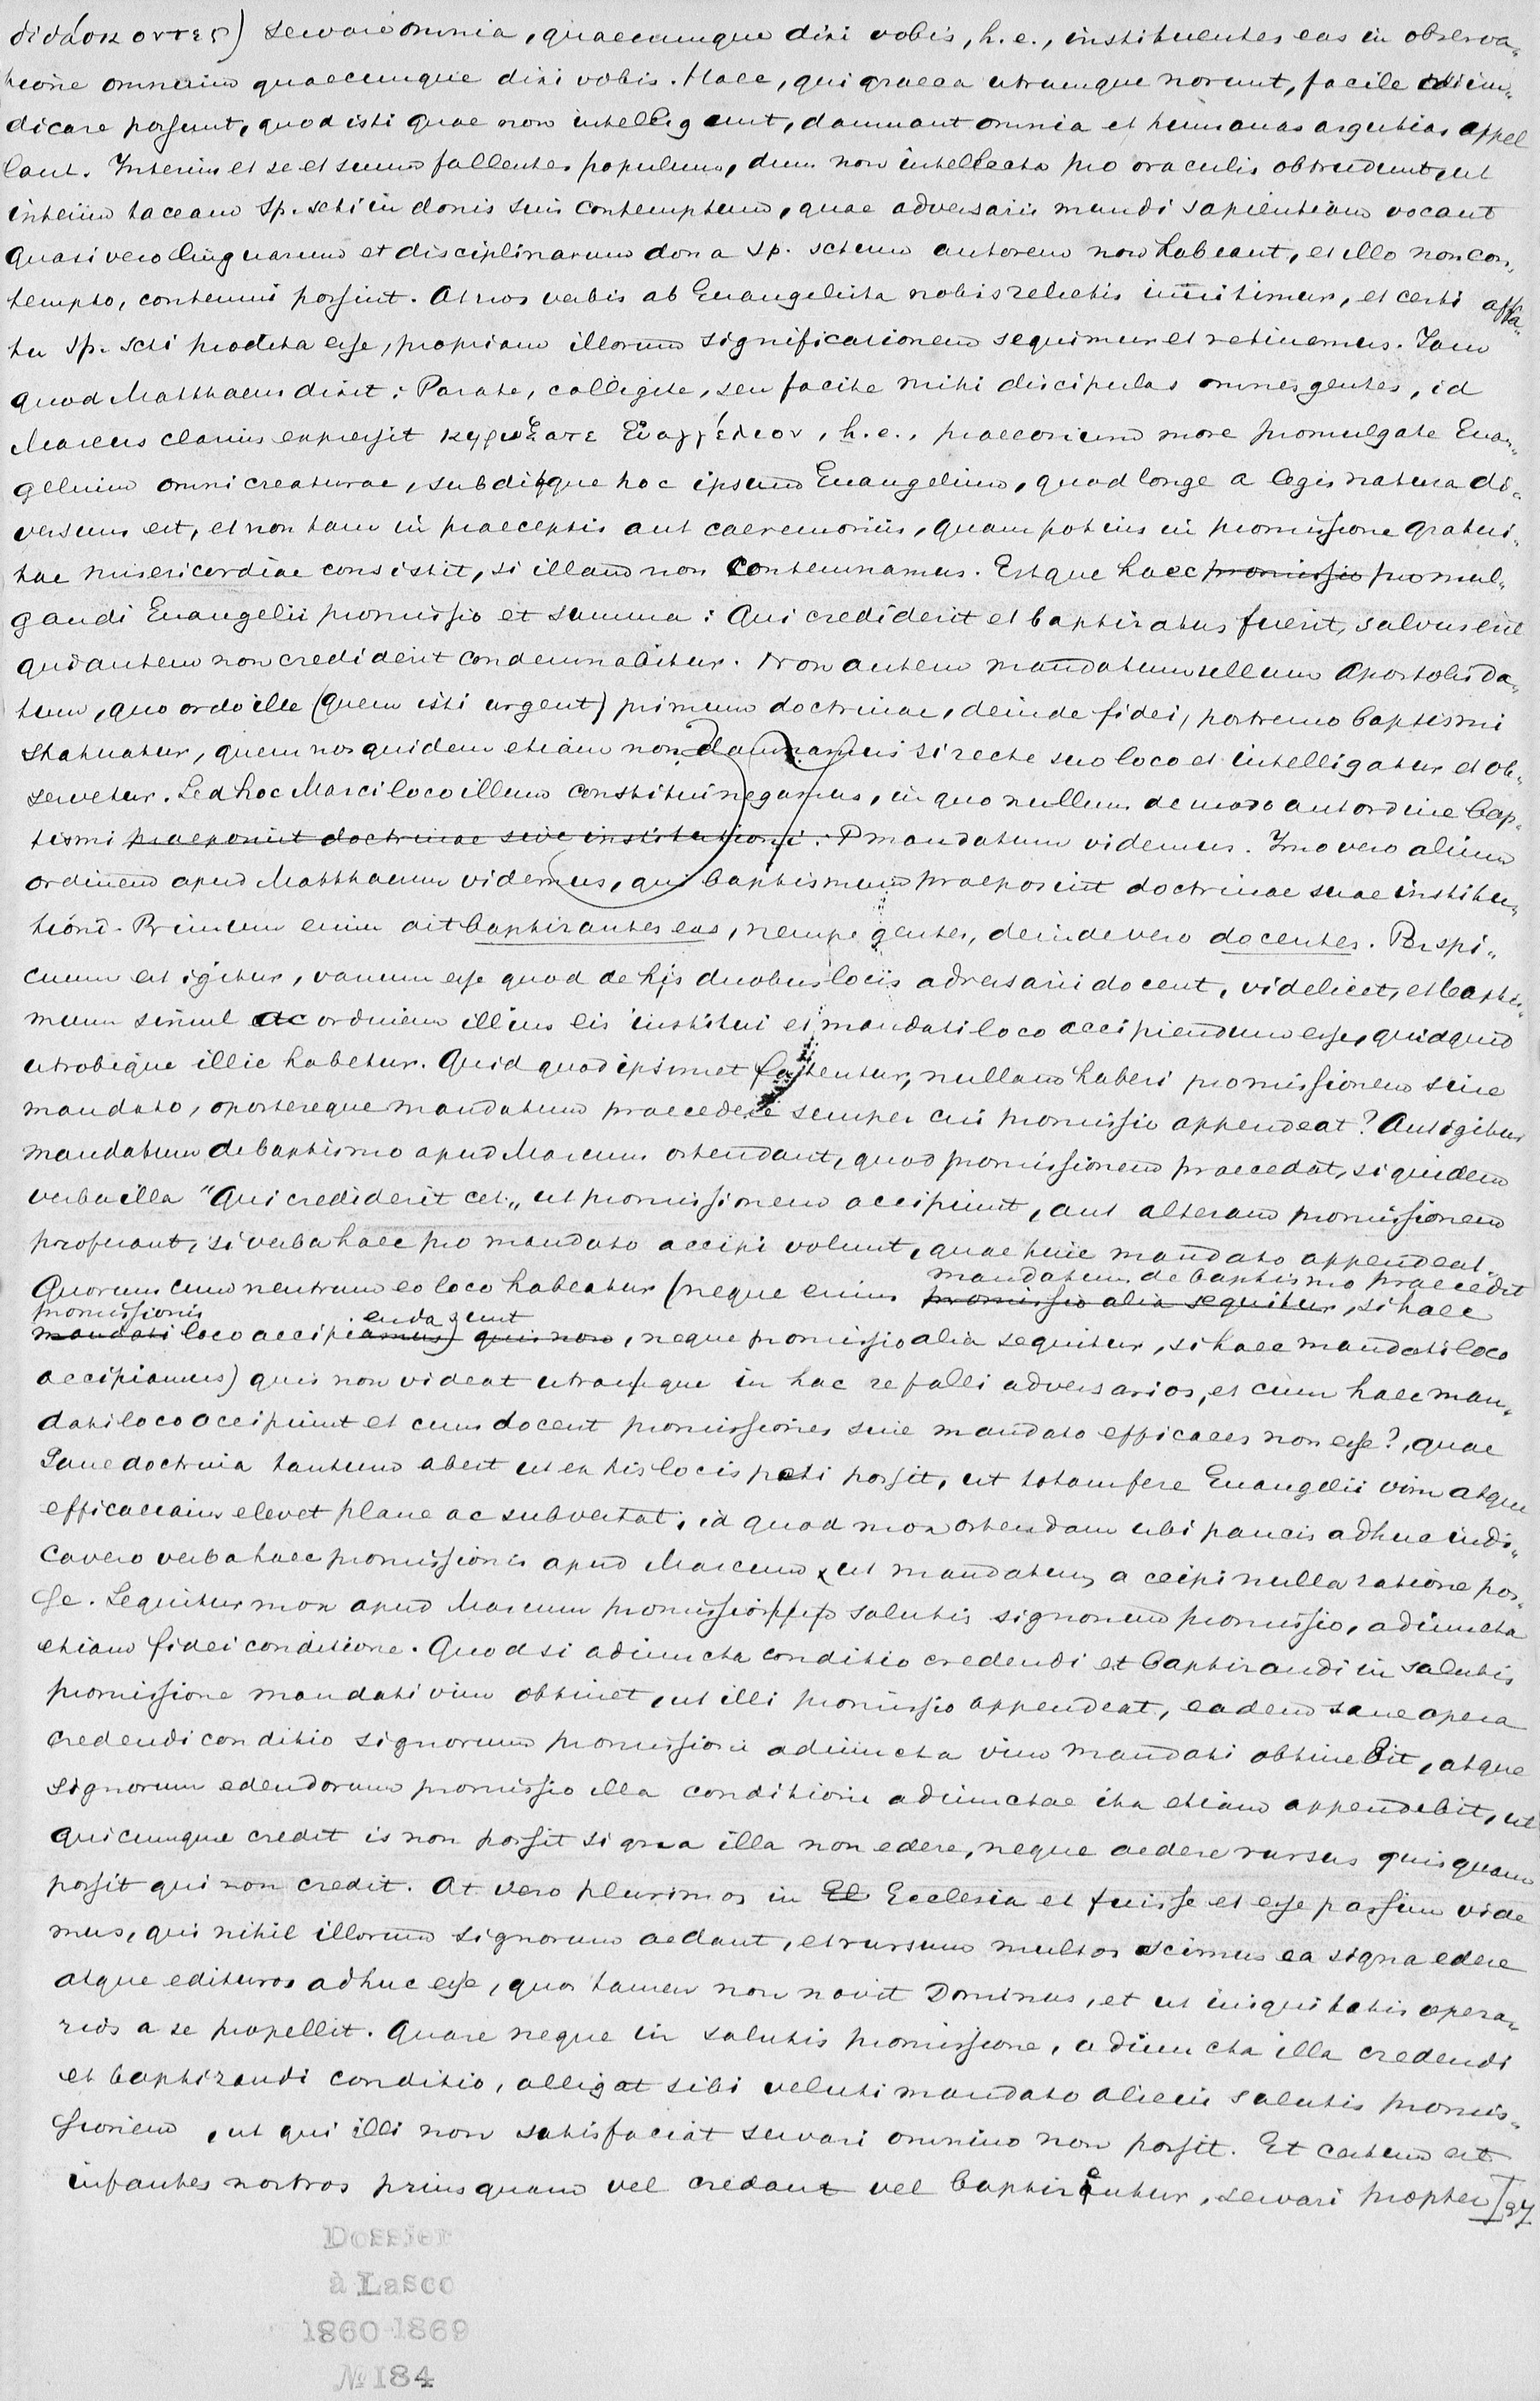 διδάσκοντες) servare omnia, quaecumque dixi vobis, h. e., instituentes eas in observa-
tione omnium quaecunque dixi vobis. Haec, qui graeca utcumque norunt, facile diiu-
dicare possunt, quod isti quae non intelligunt, damnant omnia et humanas argutias appel
lant. Interim et se et suum fallentes populum, dum non intellecta pro oraculis obtrudunt, ut
interim taceam Sp. scti in donis suis contemptum, quae adversarii mundi sapientiam vocant
quasi vero linguarum et disciplinarum dona Sp. sctum autorem non habeant, et illo non con-
tempto, contemni possint. At nos verbis ab Evangelista nobis relictis innitimur, et certi affla-
tu Sp. scti prodita esse, propriam illorum significationem sequimur et retinemus. Jam
quod Matthaeus dixit: Parate, colligite, seu facite mihi discipulas omnes gentes, id
Marcus clarius expressit κηρυξατε Ευαγγέλιον, h. e., praeconum more promulgate Evan-
gelium omni creaturae, subditque hoc ipsum Evangelium, quod longe a legis natura di-
versum est, et non tam in praeceptis aut caeremoniis, quam potius in promissione gratui-
tae misericordiae consistit, si illam non contemnamus. Estque haec promissio promul-
gandi Evangelii promissio et summa: Qui crediderit et baptizatus fuerit, salvus erit
qui autem non crediderit condemnabitur. Non autem mandatum ullum Apostolis da-
tum, quo ordo ille (quem isti urgent) primum doctrinae, deinde fidei, postremo baptismi
statuatur, quem nos quidem etiam non damnamus si recte suo loco et intelligatur et ob-
servetur. Sed hoc Marci loco illum constitui negamus, in quo nullum de modo aut ordine bap-
tismi praeponit doctrinae sive institutioni. P mandatum videmus. Imo vero alium
ordinem apud Matthaeum videmus, qui baptismum praeponit doctrinae suae institu-
tioni. Primum enim ait baptizantes eas, nempe gentes, deinde vero docentes. Perspi-
cuum est igitur, vanum esse quod de his duobus locis adversarii docent, videlicet, et baptis-
mum simul ac ordinem illius eis institui et mandati loco accipiendum esse, quidquid
utrobique illic habetur. Quid quod ipsimet fatentur, nullam haberi promissionem sine
mandato, oportereque mandatum praecedere semper cui promissio appendeat? Aut igitur
mandatum de baptismo apud Marcum ostendant, quod promissionem praecedat, siquidem
verba illa "Qui crediderit cet." ut promissionem accipiunt, aut alteram promissionem
proferant, si verba haec pro mandato accipi volunt, quae huic mandato appendeat.
Quorum cum neutrum eo loco habeatur (neque enim mandatum de baptismo praecedit
promissio alia sequitur, si haec
promissionis mandati loco accipienda sunt amus) quis non, neque promissio alia sequitur, si haec mandati loco
accipiamus) quis non videat utrumque in hac re falli adversarios, et cum haec man-
dati loco accipiunt et cum docent promissiones sine mandato efficaces non esse?, quae
sane doctrina tantum abest ut ex his locis peti possit, ut totam fere Evangelii vim atque
efficaciam elevet plane ac subvertat, id quod mox ostendam ubi paucis adhuc indi-
cavero verba haec promissionis apud Marcum ut mandatum accipi nulla ratione pos-
se. Sequitur mox apud Marcum promissioni salutis signorum promissio, adiuncta
etiam fidei conditione. Quod si adiuncta conditio credendi et baptizandi in salutis
promissione mandati vim obtinet, ut illi promissio appendeat, eadem sane opera
credendi conditio signorum promissioni adiuncta vim mandati obtinebit, atque
signorum edendorum promissio illa conditioni adiunctae ita etiam appendebit, ut
quicumque credit is non possit signa illa non edere, neque aedere rursus quisquam
possit qui non credit. At vero plurimos in El Ecclesia et fuisse et esse passim vide
mus, qui nihil illorum signorum aedant, et rursum multos scimus ea signa edere
atque edituros adhuc esse, quos tamen non novit Dominus, et ut iniquitatis opera-
rios a se propellit. Quare neque in salutis promissione, adiuncta illa credendi
et baptizandi conditio, alligat sibi veluti mandato alicui salutis promis-
sionem, ut qui illi non satisfaciat servari omnino non possit. Et certum est
infantes nostros priusquam vel credant vel baptizentur, servari propter [37
Dossier
à Lasco
1860-1869
№ 184